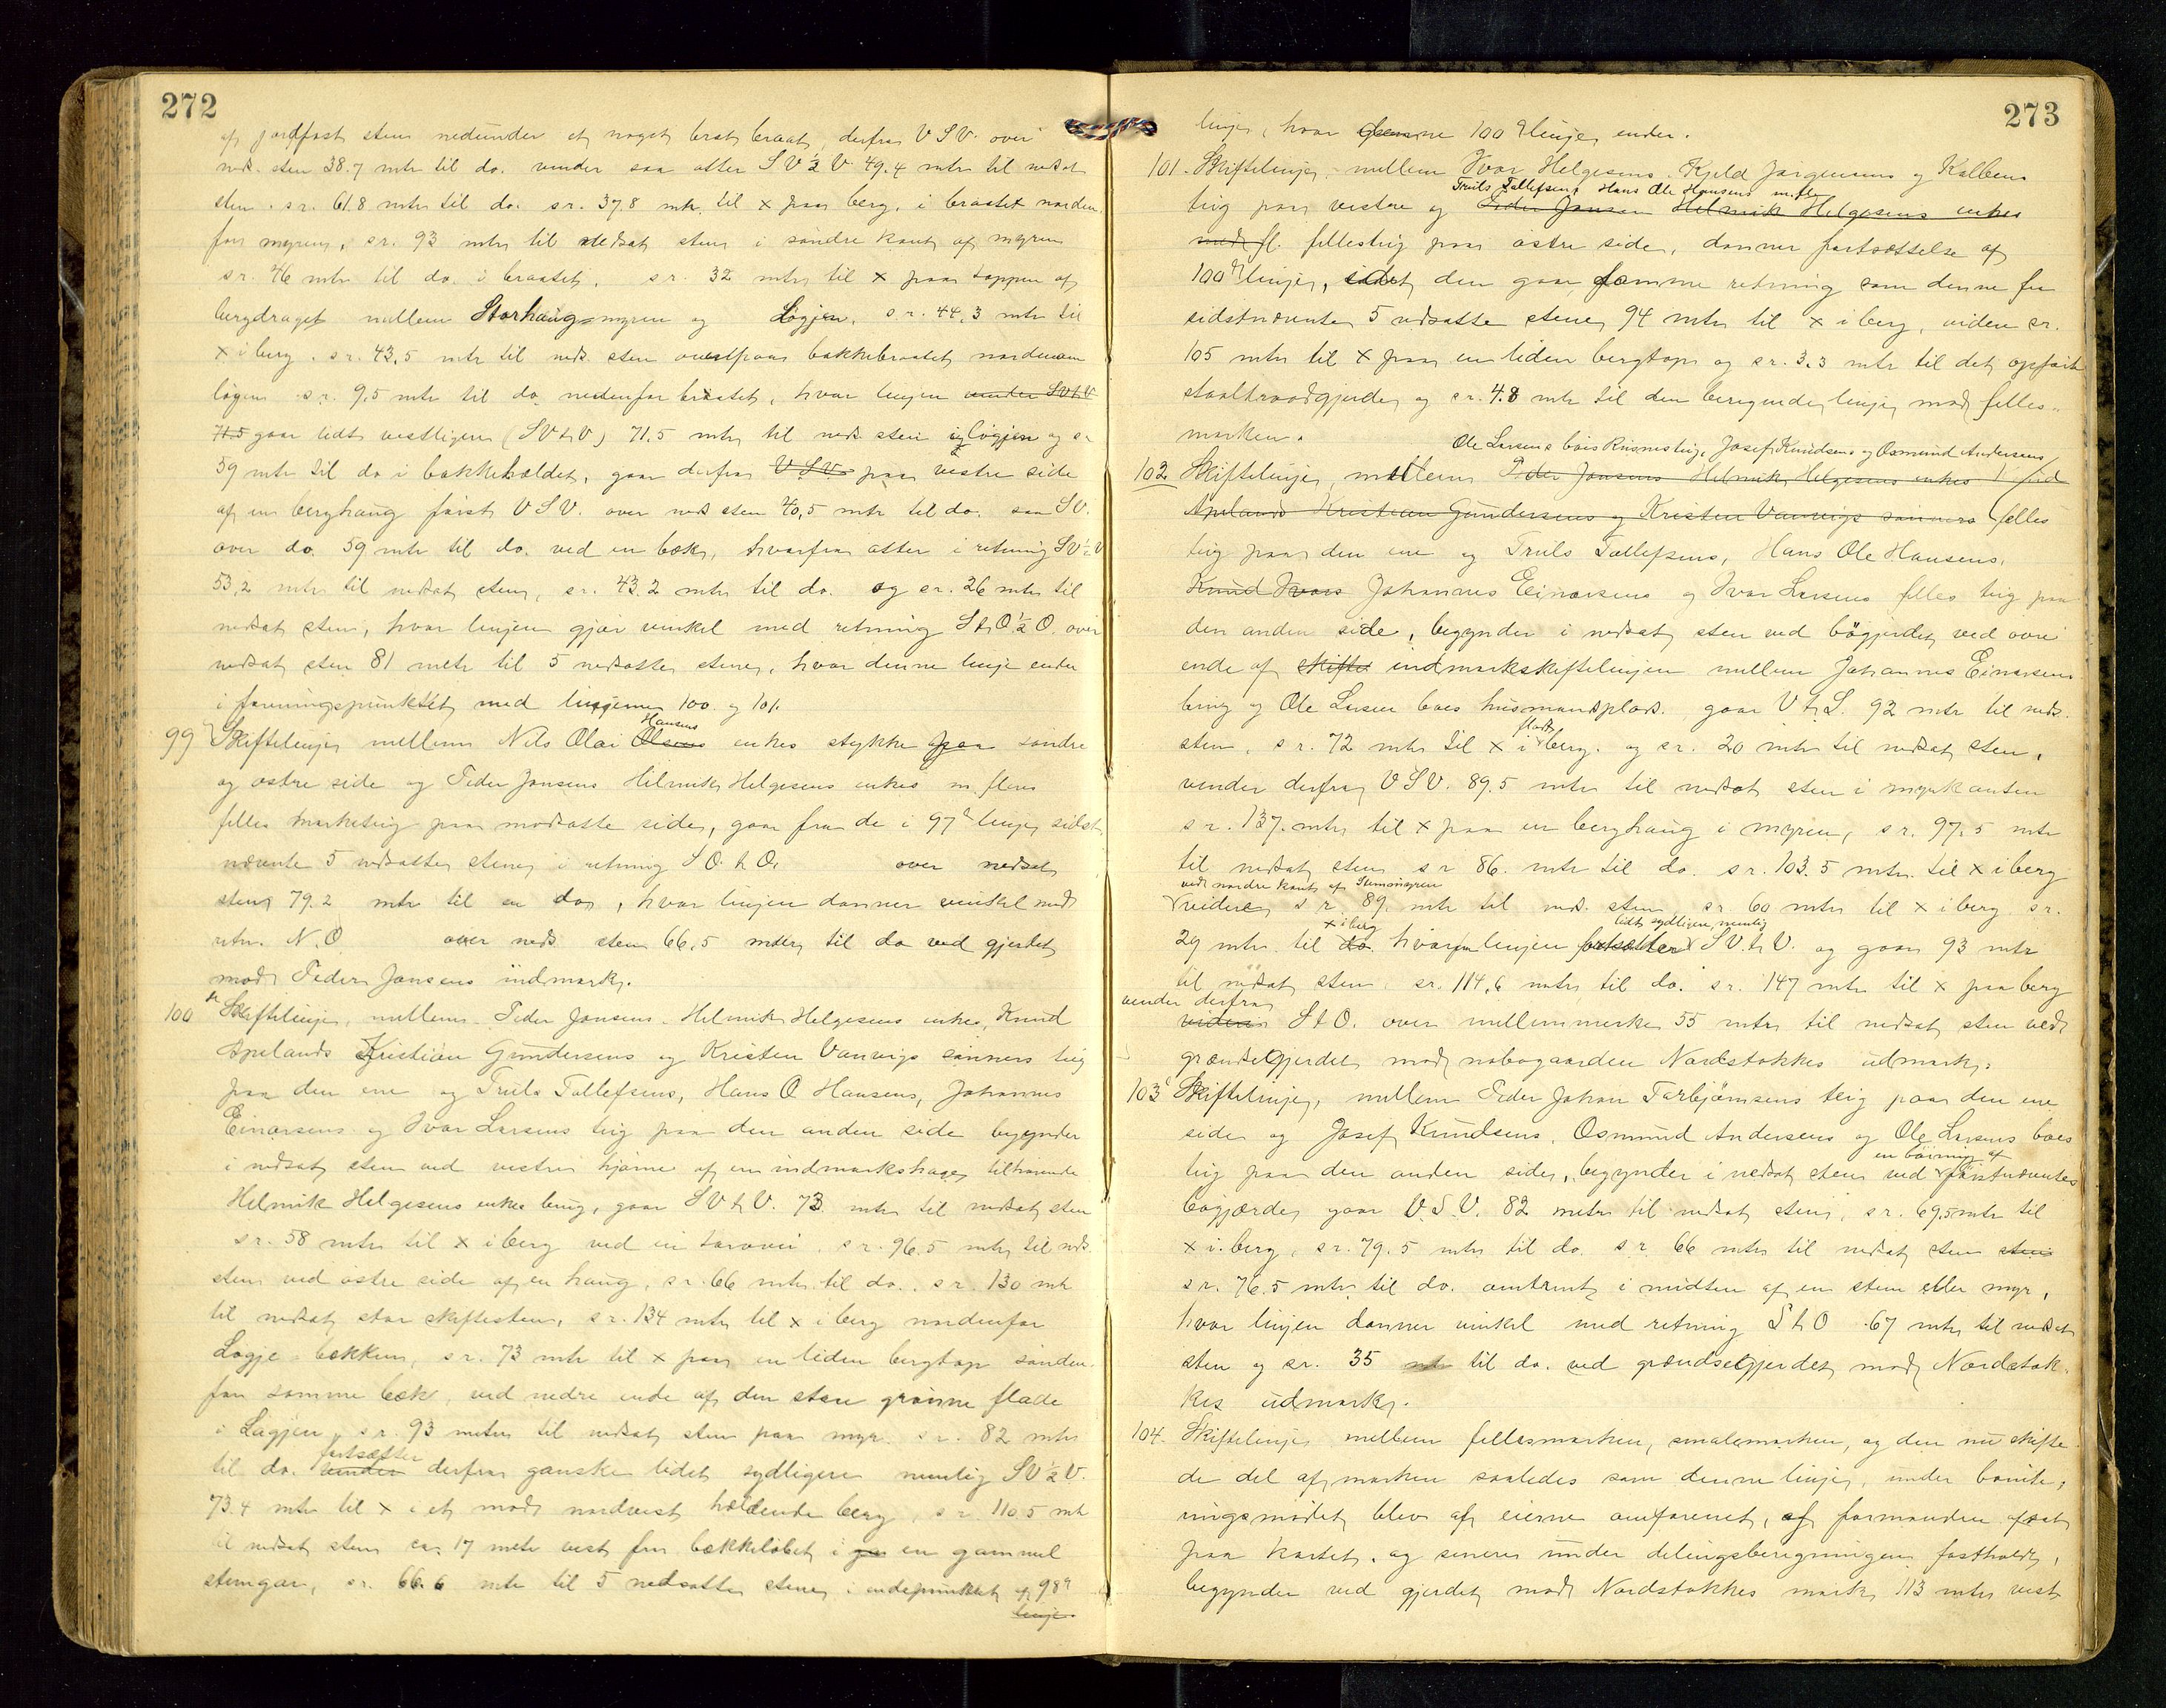 272
af jordfast sten nedunder et noget brat braat, derfra V S V. over
neds. sten 38.7 mtr til do. vender saa atter S V ½ V 49.4 mtr til nedsat
sten. s r. 61.8 mtr til do. s r. 37.8 mtr. til x paa berg, i braatet norden
for myren, s r. 93 mtr til nedsat sten i søndre kant af myren
s r. 46 mtr til do. i braatet, s r. 32 mtr til x paa toppen af
bergdraget mellem Storhaugmyren og Løgjen, s. r. 44,3 mtr til
x i berg. s r. 43,5 mtr til neds. sten øverst paa bakkebraatet nordenom
løgen s r. 9,5 mtr til do. nedenfor braatet, hvor linjen vender SVtV
71.5 gaar lidt vestligere (SVtV) 71,5 mtr til neds. sten i løgjen og s r
59 mtr til do i bakkeheldet, gaar derfra V S V. paa vestre side
af en berghaug først V S V. over neds sten 40,5 mtr til do. saa SV.
over do. 59 mtr til do. ved en bæk, hvorfra atter i retning SV ½ V
53,2 mtr til nedsat sten, s r. 43.2 mtr til do. og s r. 26 mtr til
nedsat sten, hvor linjen gjør vinkel med retning S t O ½ O. over
nedsat sten 81 metr til 5 nedsatte stene, hvor denne linje ender
i foreningspunktet med linjerne 100 og 101.
99 Skiftelinjen mellem Nils Olai Olsens Hansens enkes stykke paa søndre
og østre side og Peder Jansens Helmik Helgesens enkes m. fleres
felles marketeig paa modsatte side, gaar fra de i 97 linje sidst
nævnte 5 nedsatte stene i retning S O. t O. over nedsat
sten 79.2 mtr til en do, hvor linjen danner vinkel med
retn. N.O over neds. sten 66,5 meter til do ved gjerdet
mod Peder Jansens indmark.
100 Skiftelinjen, mellem Peder Jansens. Helmik Helgesens enkes, Knud
Apelands Kristian Gundersens og Kristen Vanvigs sønners teig
paa den ene og Truls Tollefsens, Hans O Hansens, Johannes
Einarsens og Ivar Larsens teig paa den anden side begynder
i nedsat sten ved vestre hjørne af en indmarkshage tilhørende
Helmik Helgesens enkes brug, gaar S V t V. 73 mtr til nedsat sten
s r. 58 mtr til x i berg ved en torvvei. s r. 96.5 mtr til neds.
sten ved østre side af en haug, s r. 66 mtr til do. s r. 130 mtr
til nedsat stor skiftesten, s r. 134 mtr til x i berg nordenfor
Løgje-bekken, s r. 73 mtr til x paa en liden bergtop sønden
for samme bæk, ved nedre ende af den store grønne flade
i Løgjen, s r. 93 meter til nedsat sten paa myr. s r. 82 mtr
til do. vender fortsætter derfra ganske lidet sydligere nemlig SV ½ V.
73.4 mtr til x i et mod nordvest heldende berg, s r 110.5 mtr
til nedsat sten ca. 17 metr vest for bækkeløbet i en gammel
stemgar, s r. 66.6 mtr til 5 nedsatte stene i endepunktet af 98
linje.
273
linje, hvor denne 100 linje ender.
101. Skiftelinjen mellem Ivar Helgesens, Kjeld Jørgensens og Kolbens
teig paa vestre og Peder Jansens Helmik Helgesens enkes Truls Tollefsens Hans Ole Hansens m. fl.
med fl. fellesteig paa østre side, danner fortsættelse af
100 linje, idet den gaar samme retning som denne fra
sidstnævnte 5 nedsatte stene 94 mtr til x i berg, videre s r.
105 mtr til x paa en liden bergtop og s r. 3.3 mtr til det opførte
staaltraadgjerde og s r. 4.8 mtr til den beregnede linje mod felles-
marken.
Ole Larsens boes Rusnesteig, Josef Knudsens og Osmund Andersens
102 Skiftelinjen mellem Peder Jansens Helmik Helgesens enkes Knud
Apelands Kristian Gundersens og Kristen Vanvigs sønners felles
teig paa den ene og Truls Tollefsens, Hans Ole Hansens,
Knud Ivars Johannes Einarsens og Ivar Larsens felles teig paa
den anden side, begynder i nedsat sten ved bøgjerdet ved øvre
ende af skifte indmarkskiftelinjen mellem Johannes Einarsens
brug og Ole Larsen boes husmandsplads, gaar V t S. 92 mtr til neds.
sten, s r. 72 mtr til x i fladt berg. og s r. 20 mtr til nedsat sten,
vender derfra V S V. 89.5 mtr til nedsat sten i myrkanten
s r. 137. mtr til x paa en berghaug i myren, s r. 97,5 mtr
til nedsat sten s r 86. mtr til do. s r. 103.5 mtr. til x i berg
ved nordre kant af Stemmyren
videre s r. 89 mtr til neds. sten s r 60 mtr til x i berg s r.
29 mtr. til do x i berg hvorfra linjen fortsætter lidt sydligere, nemlig S V. t V. og gaar 93 mtr
til nedsat sten, s r. 114,6 mtr til do. s r. 147 mtr til x paa berg
vender derfra
videre S t O. over mellemmerke 55 mtr til nedsat sten ved
grændsegjerdet mod nabogaarden Nordstokkes udmark.
103 Skiftelinjen, mellem Peder Johan Torbjørnsens teig paa den ene
side og Josef Knudsens, Osmund Andersens og Ole Larsens boes
teig paa den anden side, begynder i nedsat sten ved en bøining af førstnævntes
bøgjærde, gaar V. S V. 82 metr til nedsat sten, s r. 69,5 mtr til
x i berg, s r. 79.5 mtr til do. s r. 66 mtr til nedsat sten sten
s r. 76.5 mtr til do. omtrent i midten af en stem eller myr,
hvor linjen danner vinkel med retning S t O 67 mtr til nedsat
sten og s r. 35 mtr til do. ved grændsegjerdet mod Nordstok-
kes udmark.
104. Skiftelinje mellem fellesmarken, smalemarken, og den nu skifte-
de del af marken saaledes som denne linje, under bonite-
ringsmødet blev af eierne omforenet, af formanden afsat
paa kartet, og senere under delingsberegningen fastholdt,
begynder ved gjerdet mod Nordstokkes mark 113 mtr vest